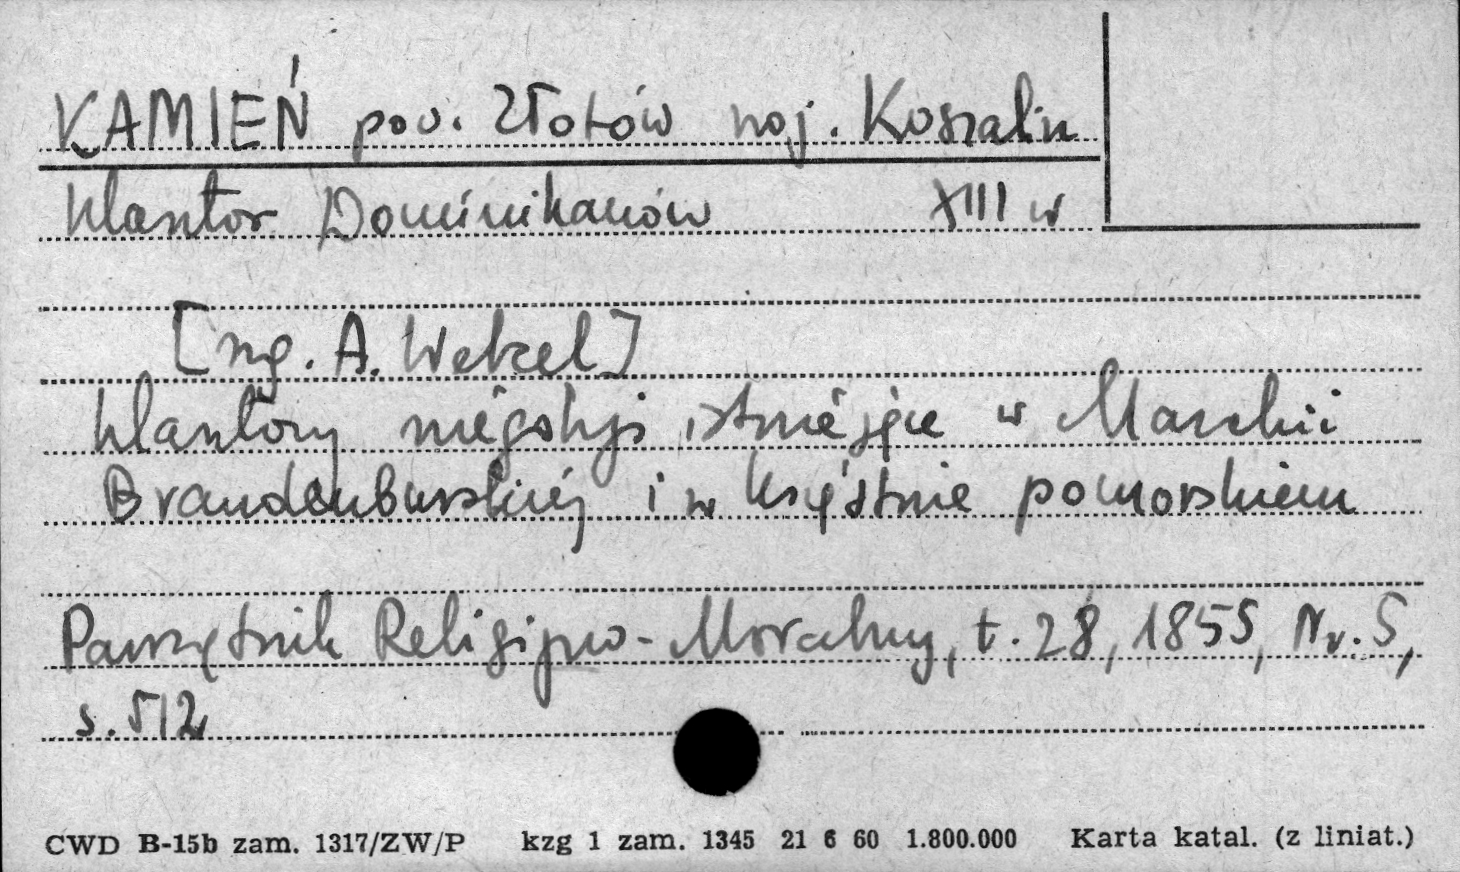 KAMIEŃ pow. Złotów woj. Koszalin
klasztor Dominikanów XIII w
[wg. A. Wetzel]
klasztory niegdyś istniejące w Marchii
Brandenburskiéj i w księstwie pomorskiem
Pamiętnik Religijno-Moralny, t. 28, 1855, Nr. 5,
s. 512
CWD B-15b zam. 1317/ZW/P kzg 1 zam. 1345 21 6 60 1.800.000 Karta katal. (z liniat.)